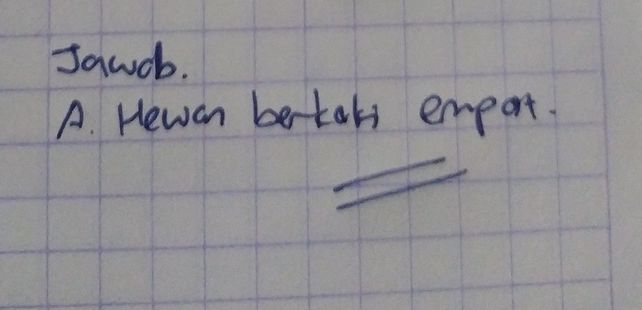 Jawab.
A. Hewan berkaki empat.